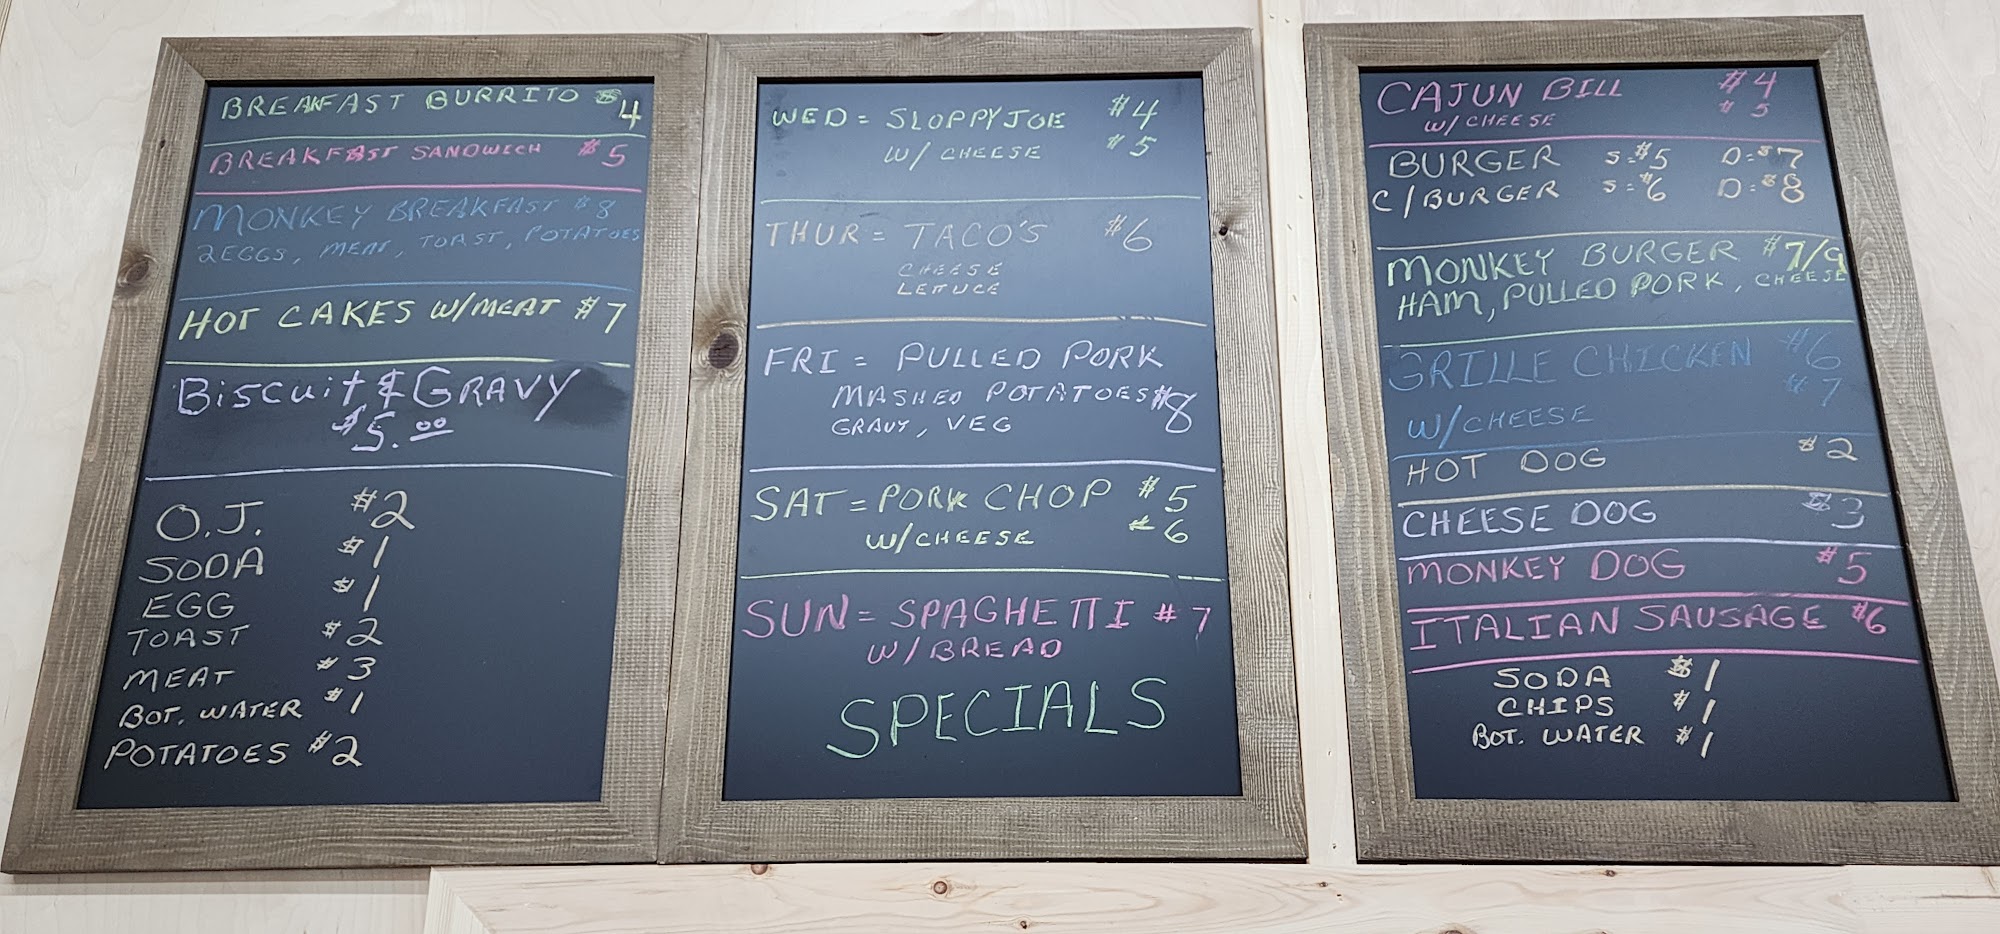 BREAKFAST BURRITO $4
BREAKFAST SANDWICH $5
MONKEY BREAKFAST $8
2EGGS, MEAT, TOAST, POTATOES
HOT CAKES W/MEAT $7
BiscUit & GRAVY
$5.00
O.J. $2
SODA $1
EGG $1
TOAST $2
MEAT $3
BOT. WATER $1
POTATOES $2
WED = SLOPPY JOE $4
W/ CHEESE $5
THUR = TACO'S $6
CHEESE
LETTUCE
FRI = PULLED PORK
MASHED POTATOES $8
GRAVY, VEG
SAT = PORK CHOP $5
W/CHEESE $6
SUN = SPAGHETTI $7
W/BREAD
SPECIALS
CAJUN BILL $4
W/CHEESE $5
BURGER S=$5 D=$7
C/BURGER S=$6 D=$8
MONKEY BURGER $7/9
HAM, PULLED PORK, CHEESE
GRILLE CHICKEN $6
W/CHEESE $7
HOT DOG $2
CHEESE DOG $3
MONKEY DOG $5
ITALIAN SAUSAGE $6
SODA $1
CHIPS $1
BOT. WATER $1